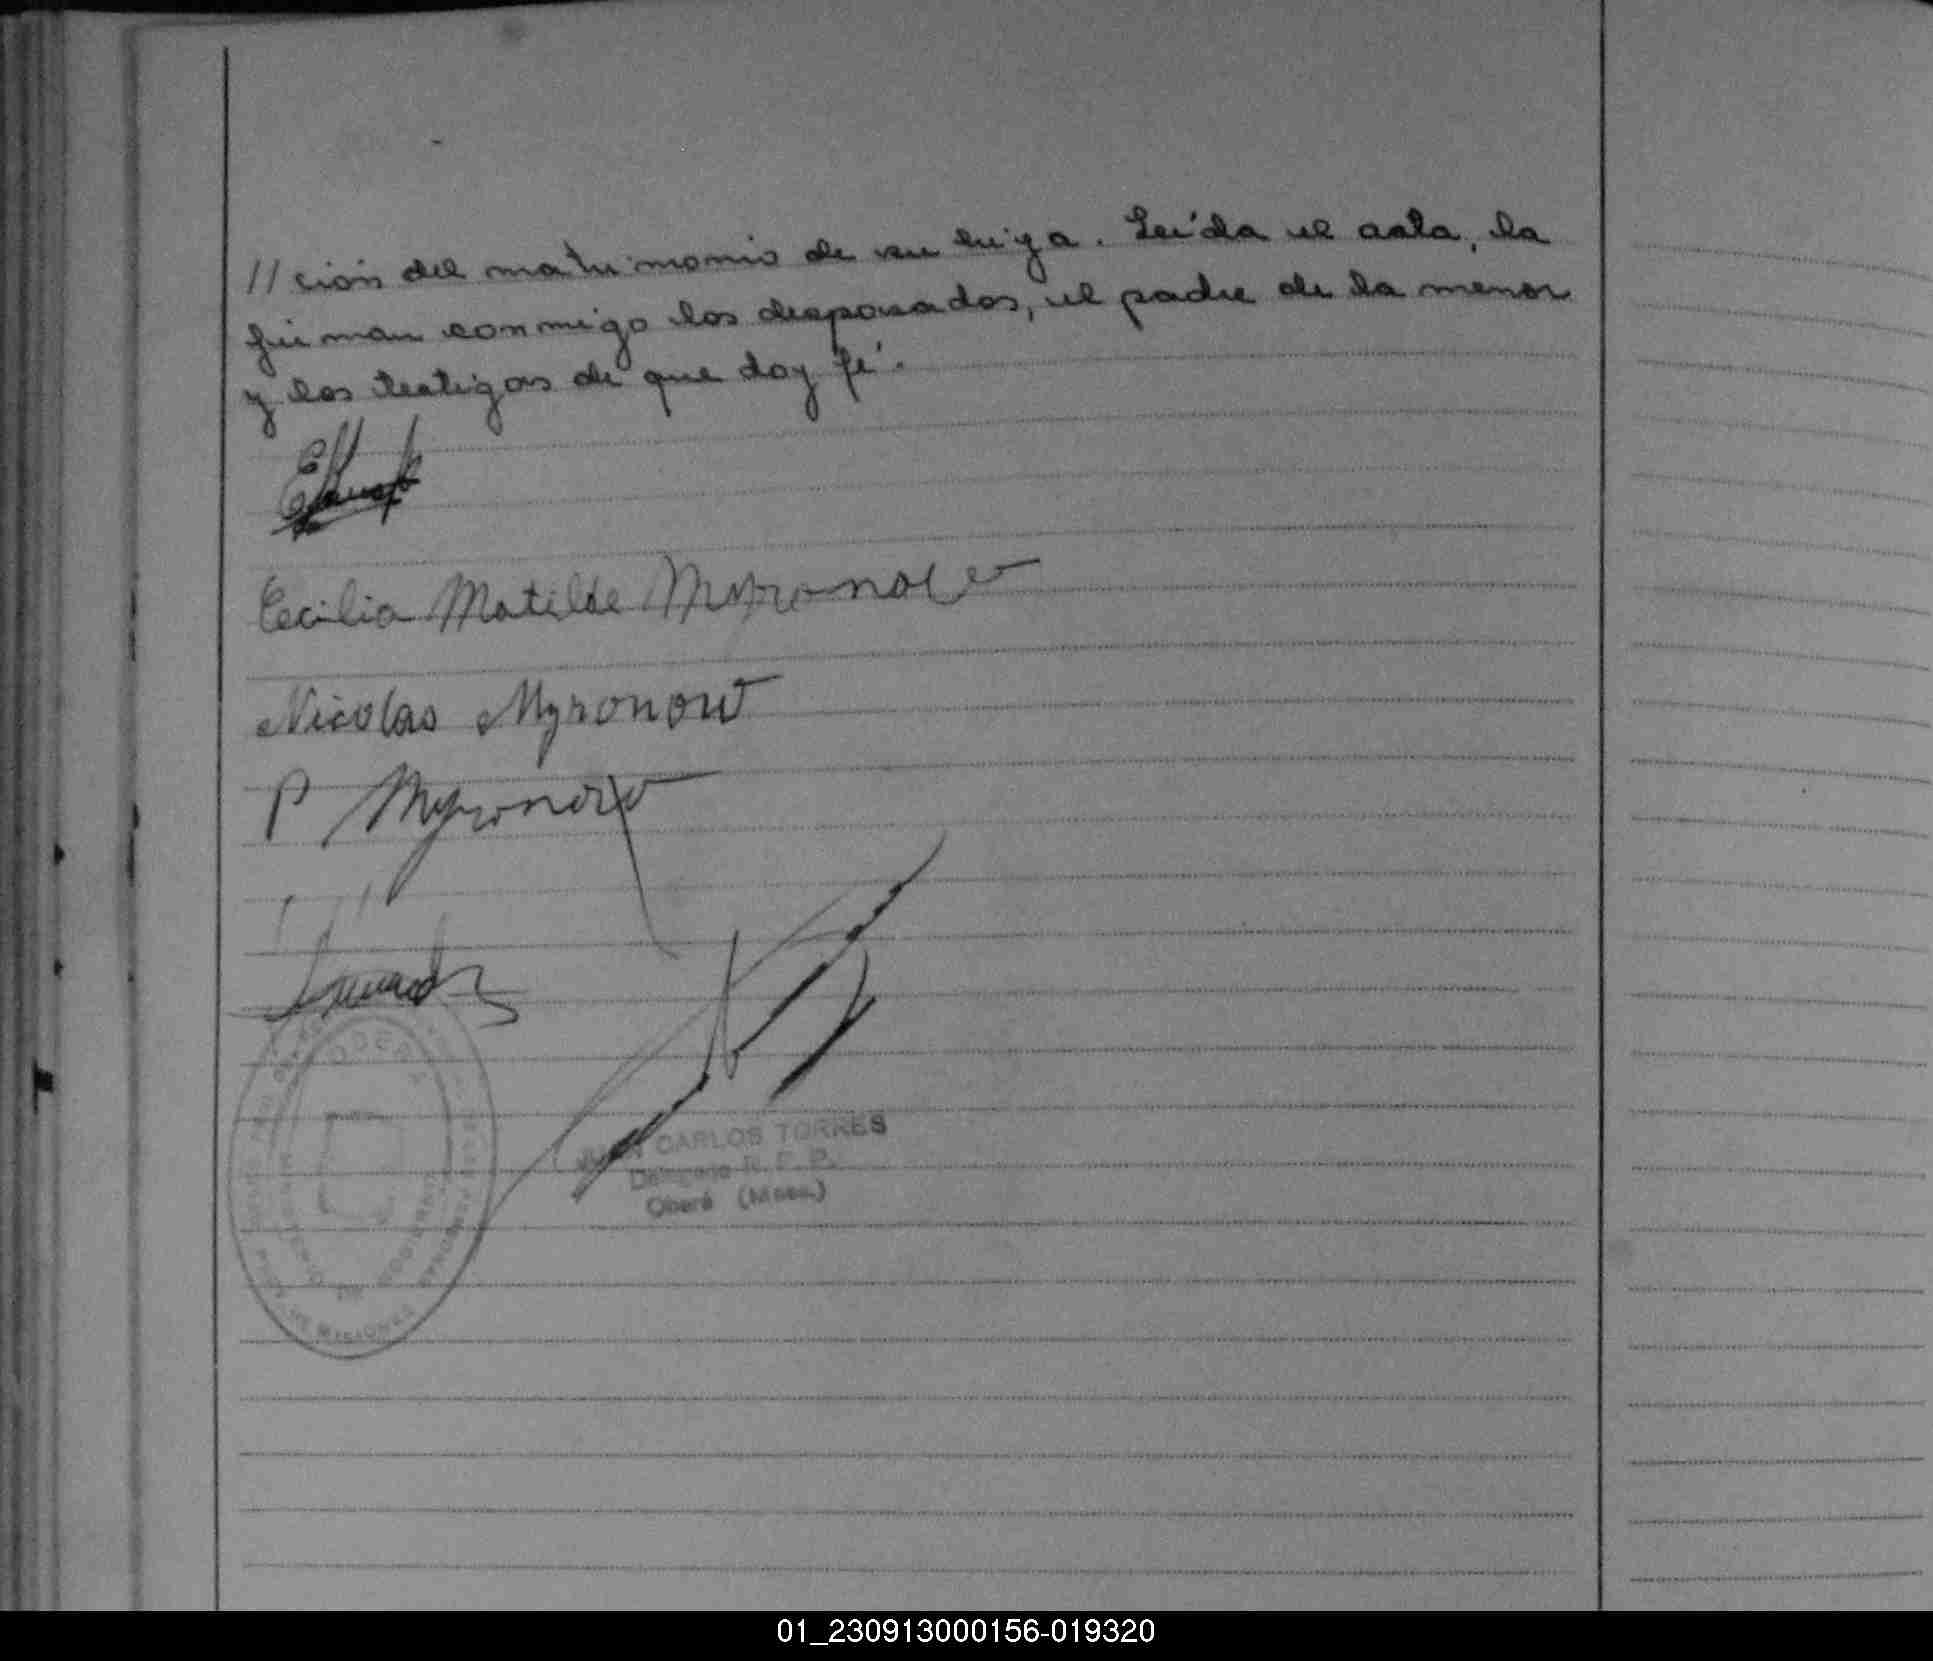 //ción del matrimonio de su hija. Leída el acta, la
firman conmigo los desposados, el padre de la menor
y los testigos de que doy fé.
Cecilia Matilde Myronow
Nicolas Myronow
P Myronow
JUAN CARLOS TORRES
Delegado R. P. P.
Oberá (Mnes.)
01_230913000156-019320